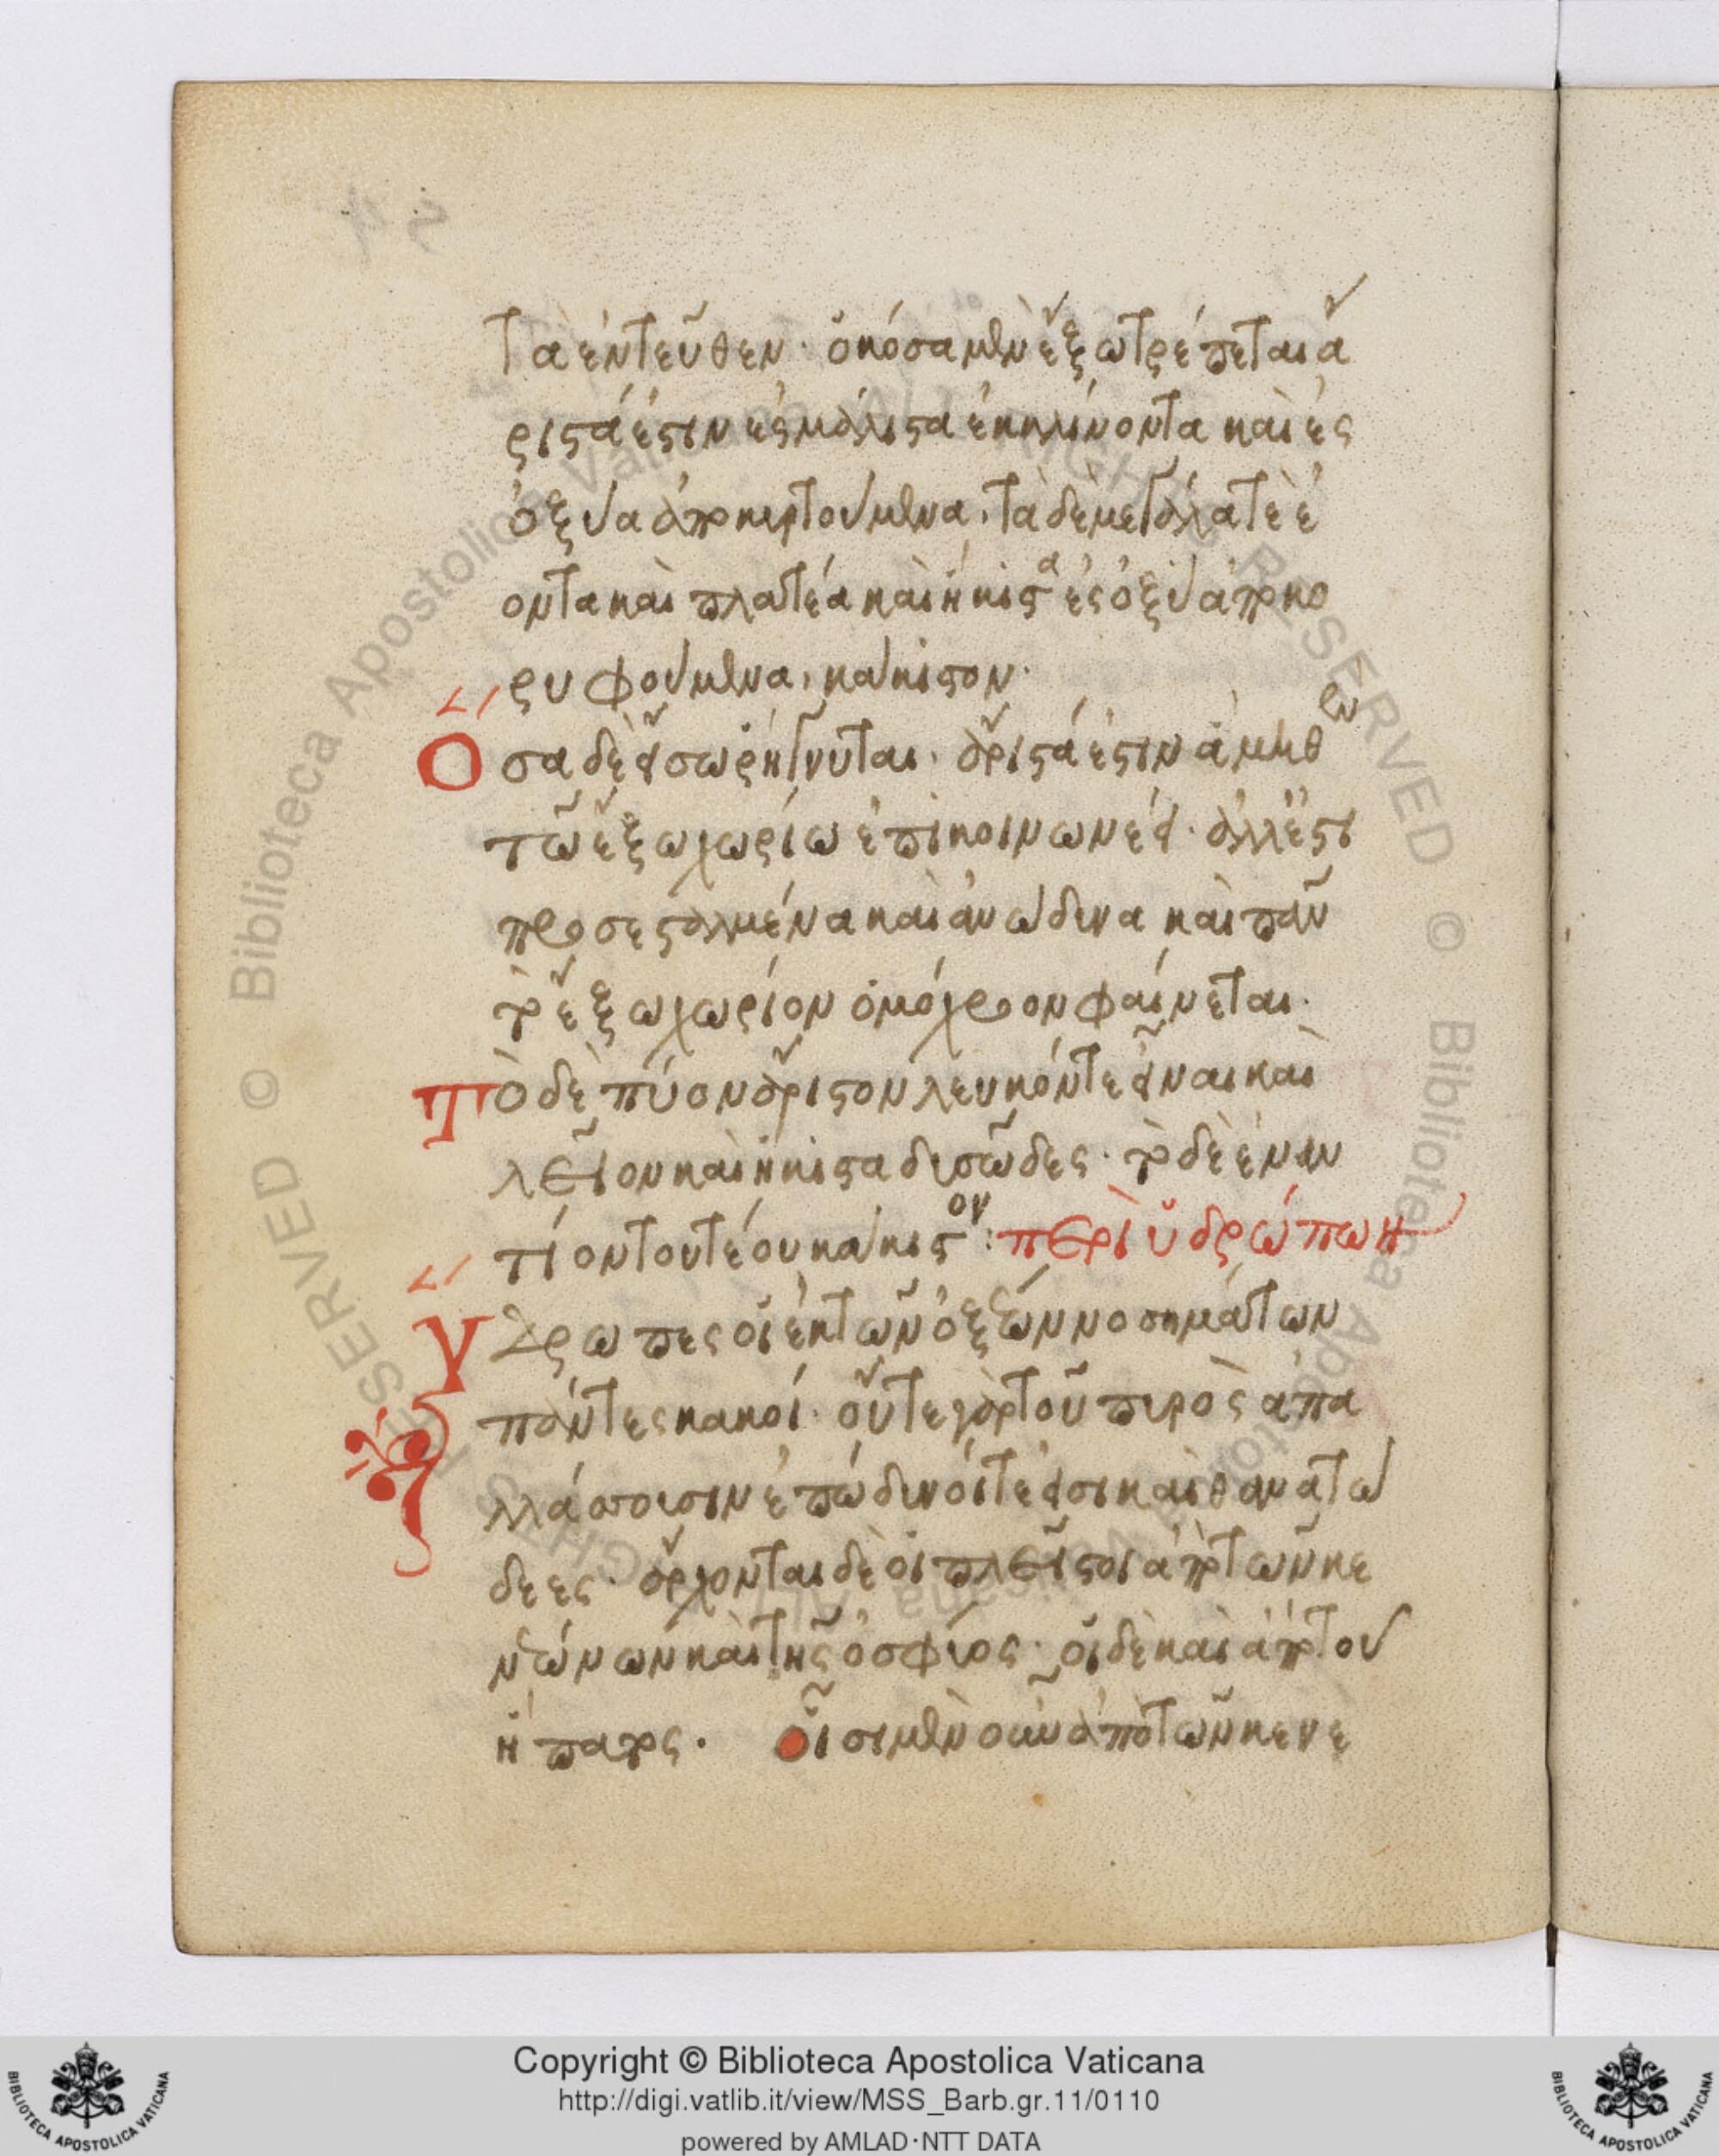 τὰ ἐντεῦθεν· ὁκόσα μὲν ἔξω τρέπεται ἄ
ριστά ἐστιν ἐς μάλιστα ἐκκλίνοντα καὶ ἐς
ὀξὺ ἀποκυρτούμενα. τὰ δὲ μεγάλα τὲ ἐ
όντα καὶ πλατέα καὶ ἥκιστα ἐς ὀξὺ ἀποκο
ρυφούμενα, κάκιστον·
Ὅσα δὲ εἴσω ῥήγνυται. ἄριστά ἐστιν ἃ μηθὲν
τῷ ἔξω χωρίω ἐπικοινωνέει· ἀλλ' ἔστι
προσεσταλμένα καὶ ἀνώδυνα καὶ πᾶν
τὸ ἔξω χωρίον ὁμόχροον φαίνεται·
Τὸ δὲ πύον ἄριστον λευκόν τε εἶναι καὶ
λεῖον καὶ ἥκιστα δυσῶδες· τὸ δὲ ἐναν
τίον τουτέου κάκιστον: περὶ ὑδρώπων
Ὕδρωπες οἱ ἐκ τῶν ὀξέων νοσημάτων
πάντες κακοί· οὔτε γὰρ τοῦ πυρὸς ἀπα
λλάσσουσιν ἐπώδυνοί τε εἰσι καὶ θανατώ
δεες· ἄρχονται δὲ οἱ πλεῖστοι ἀπὸ τῶν κε
νεώνων καὶ τῆς ὀσφύος· οἱ δὲ καὶ ἀπὸ τοῦ
ἥπατος. οἷσι μὲν οὖν ἀπὸ τῶν κενε
Copyright © Biblioteca Apostolica Vaticana
http://digi.vatlib.it/view/MSS_Barb.gr.11/0110
powered by AMLAD·NTT DATA
BIBLIOTECA APOSTOLICA VATICANA
BIBLIOTECA APOSTOLICA VATICANA